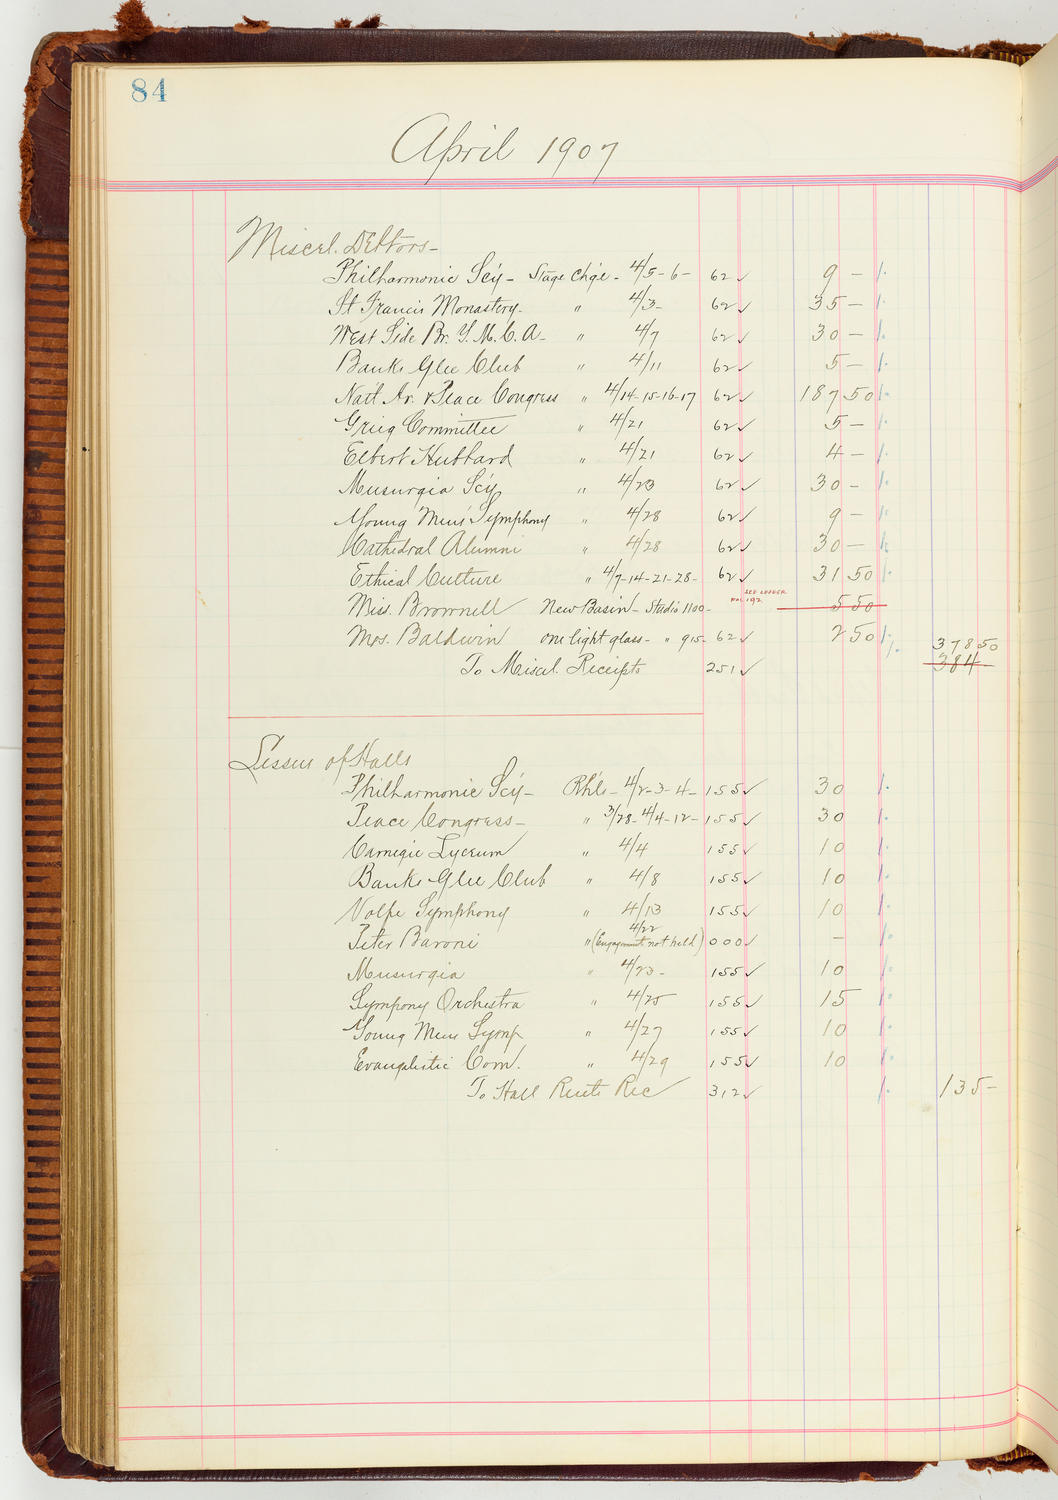 84
April 1907
Miscel. Debtors-
Philharmonic Scy - Stage Chg'e - 4/5-6- 62 ✓ 9 -
St Francis Monastery- " 4/3- 62 ✓ 35 -
West Side Br. Y.M.C.A- " 4/7 62 ✓ 30 -
Banks Glee Club " 4/11 62 ✓ 5 -
Nat'l Ar. & Peace Congress " 4/14-15-16-17 62 ✓ 187 50
Grieg Committee " 4/21 62 ✓ 5 -
Elbert Hubbard " 4/21 62 ✓ 4 -
Musurgia Scy " 4/23 62 ✓ 30 -
Young Mens Symphony " 4/28 62 ✓ 9 -
Cathedral Alumni " 4/28 62 ✓ 30 -
Ethical Culture " 4/7-14-21-28- 62 ✓ 31 50
Miss. Brownell New Basin - Studio 1100- SEE LEDGER FOL 192 5 50
Mrs. Baldwin one light glass - " 915- 62 ✓ 2 50 378 50
To Miscel. Receipts 251 ✓ 384
Lessees of Halls
Philharmonic Scy - Rhls - 4/2-3-4- 155 ✓ 30
Peace Congress - " 3/28-4/4-12- 155 ✓ 30
Carnegie Lyceum " 4/4 155 ✓ 10
Banks Glee Club " 4/8 155 ✓ 10
Volpe Symphony " 4/13 155 ✓ 10
Peter Baroni " 4/22 (Engagement not held) 000 ✓ -
Musurgia " 4/23- 155 ✓ 10
Sympony Orchestra " 4/25 155 ✓ 15
Young Mens Symp " 4/27 155 ✓ 10
Evanglistic Com. " 4/29 155 ✓ 10
To Hall Rents Rec 312 ✓ 135 -